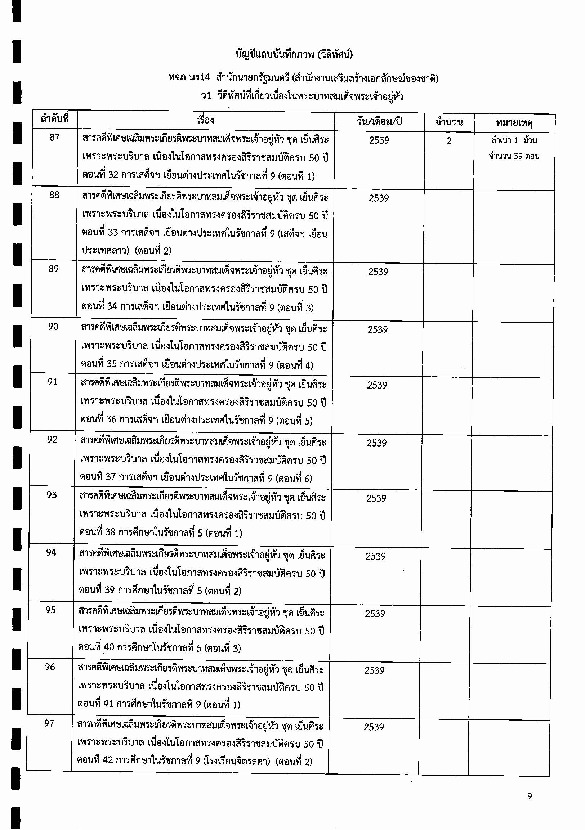 บัญชีแถบบันทึกภาพ (วีดิทัศน์)
หจภ นร14 สำนักนายกรัฐมนตรี (สำนักงานเสริมสร้างเอกลักษณ์ของชาติ)
ว1 วีดิทัศน์ที่เกี่ยวเนื่องในพระบาทสมเด็จพระเจ้าอยู่หัว
ลำดับที่ เรื่อง วัน/เดือน/ปี จำนวน หมายเหตุ
87 สารคดีพิเศษเฉลิมพระเกียรติพระบาทสมเด็จพระเจ้าอยู่หัว ชุด เย็นศิระ 2539 2 สำเนา 1 ม้วน
เพราะพระบริบาล เนื่องในโอกาสทรงครองสิริราชสมบัติครบ 50 ปี จำนวน 59 ตอน
ตอนที่ 32 การเสด็จฯ เยือนต่างประเทศในรัชกาลที่ 9 (ตอนที่ 1)
88 สารคดีพิเศษเฉลิมพระเกียรติพระบาทสมเด็จพระเจ้าอยู่หัว ชุด เย็นศิระ 2539
เพราะพระบริบาล เนื่องในโอกาสทรงครองสิริราชสมบัติครบ 50 ปี
ตอนที่ 33 การเสด็จฯ เยือนต่างประเทศในรัชกาลที่ 9 (เสด็จฯ เยือน
ประเทศลาว) (ตอนที่ 2)
89 สารคดีพิเศษเฉลิมพระเกียรติพระบาทสมเด็จพระเจ้าอยู่หัว ชุด เย็นศิระ 2539
เพราะพระบริบาล เนื่องในโอกาสทรงครองสิริราชสมบัติครบ 50 ปี
ตอนที่ 34 การเสด็จฯ เยือนต่างประเทศในรัชกาลที่ 9 (ตอนที่ 3)
90 สารคดีพิเศษเฉลิมพระเกียรติพระบาทสมเด็จพระเจ้าอยู่หัว ชุด เย็นศิระ 2539
เพราะพระบริบาล เนื่องในโอกาสทรงครองสิริราชสมบัติครบ 50 ปี
ตอนที่ 35 การเสด็จฯ เยือนต่างประเทศในรัชกาลที่ 9 (ตอนที่ 4)
91 สารคดีพิเศษเฉลิมพระเกียรติพระบาทสมเด็จพระเจ้าอยู่หัว ชุด เย็นศิระ 2539
เพราะพระบริบาล เนื่องในโอกาสทรงครองสิริราชสมบัติครบ 50 ปี
ตอนที่ 36 การเสด็จฯ เยือนต่างประเทศในรัชกาลที่ 9 (ตอนที่ 5)
92 สารคดีพิเศษเฉลิมพระเกียรติพระบาทสมเด็จพระเจ้าอยู่หัว ชุด เย็นศิระ 2539
เพราะพระบริบาล เนื่องในโอกาสทรงครองสิริราชสมบัติครบ 50 ปี
ตอนที่ 37 การเสด็จฯ เยือนต่างประเทศในรัชกาลที่ 9 (ตอนที่ 6)
93 สารคดีพิเศษเฉลิมพระเกียรติพระบาทสมเด็จพระเจ้าอยู่หัว ชุด เย็นศิระ 2539
เพราะพระบริบาล เนื่องในโอกาสทรงครองสิริราชสมบัติครบ 50 ปี
ตอนที่ 38 การศึกษาในรัชกาลที่ 5 (ตอนที่ 1)
94 สารคดีพิเศษเฉลิมพระเกียรติพระบาทสมเด็จพระเจ้าอยู่หัว ชุด เย็นศิระ 2539
เพราะพระบริบาล เนื่องในโอกาสทรงครองสิริราชสมบัติครบ 50 ปี
ตอนที่ 39 การศึกษาในรัชกาลที่ 5 (ตอนที่ 2)
95 สารคดีพิเศษเฉลิมพระเกียรติพระบาทสมเด็จพระเจ้าอยู่หัว ชุด เย็นศิระ 2539
เพราะพระบริบาล เนื่องในโอกาสทรงครองสิริราชสมบัติครบ 50 ปี
ตอนที่ 40 การศึกษาในรัชกาลที่ 5 (ตอนที่ 3)
96 สารคดีพิเศษเฉลิมพระเกียรติพระบาทสมเด็จพระเจ้าอยู่หัว ชุด เย็นศิระ 2539
เพราะพระบริบาล เนื่องในโอกาสทรงครองสิริราชสมบัติครบ 50 ปี
ตอนที่ 41 การศึกษาในรัชกาลที่ 9 (ตอนที่ 1)
97 สารคดีพิเศษเฉลิมพระเกียรติพระบาทสมเด็จพระเจ้าอยู่หัว ชุด เย็นศิระ 2539
เพราะพระบริบาล เนื่องในโอกาสทรงครองสิริราชสมบัติครบ 50 ปี
ตอนที่ 42 การศึกษาในรัชกาลที่ 9 (โรงเรียนจิตรลดา) (ตอนที่ 2)
9